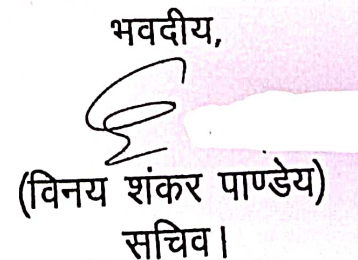 भवदीय,
(विनय शंकर पाण्डेय)
सचिव।